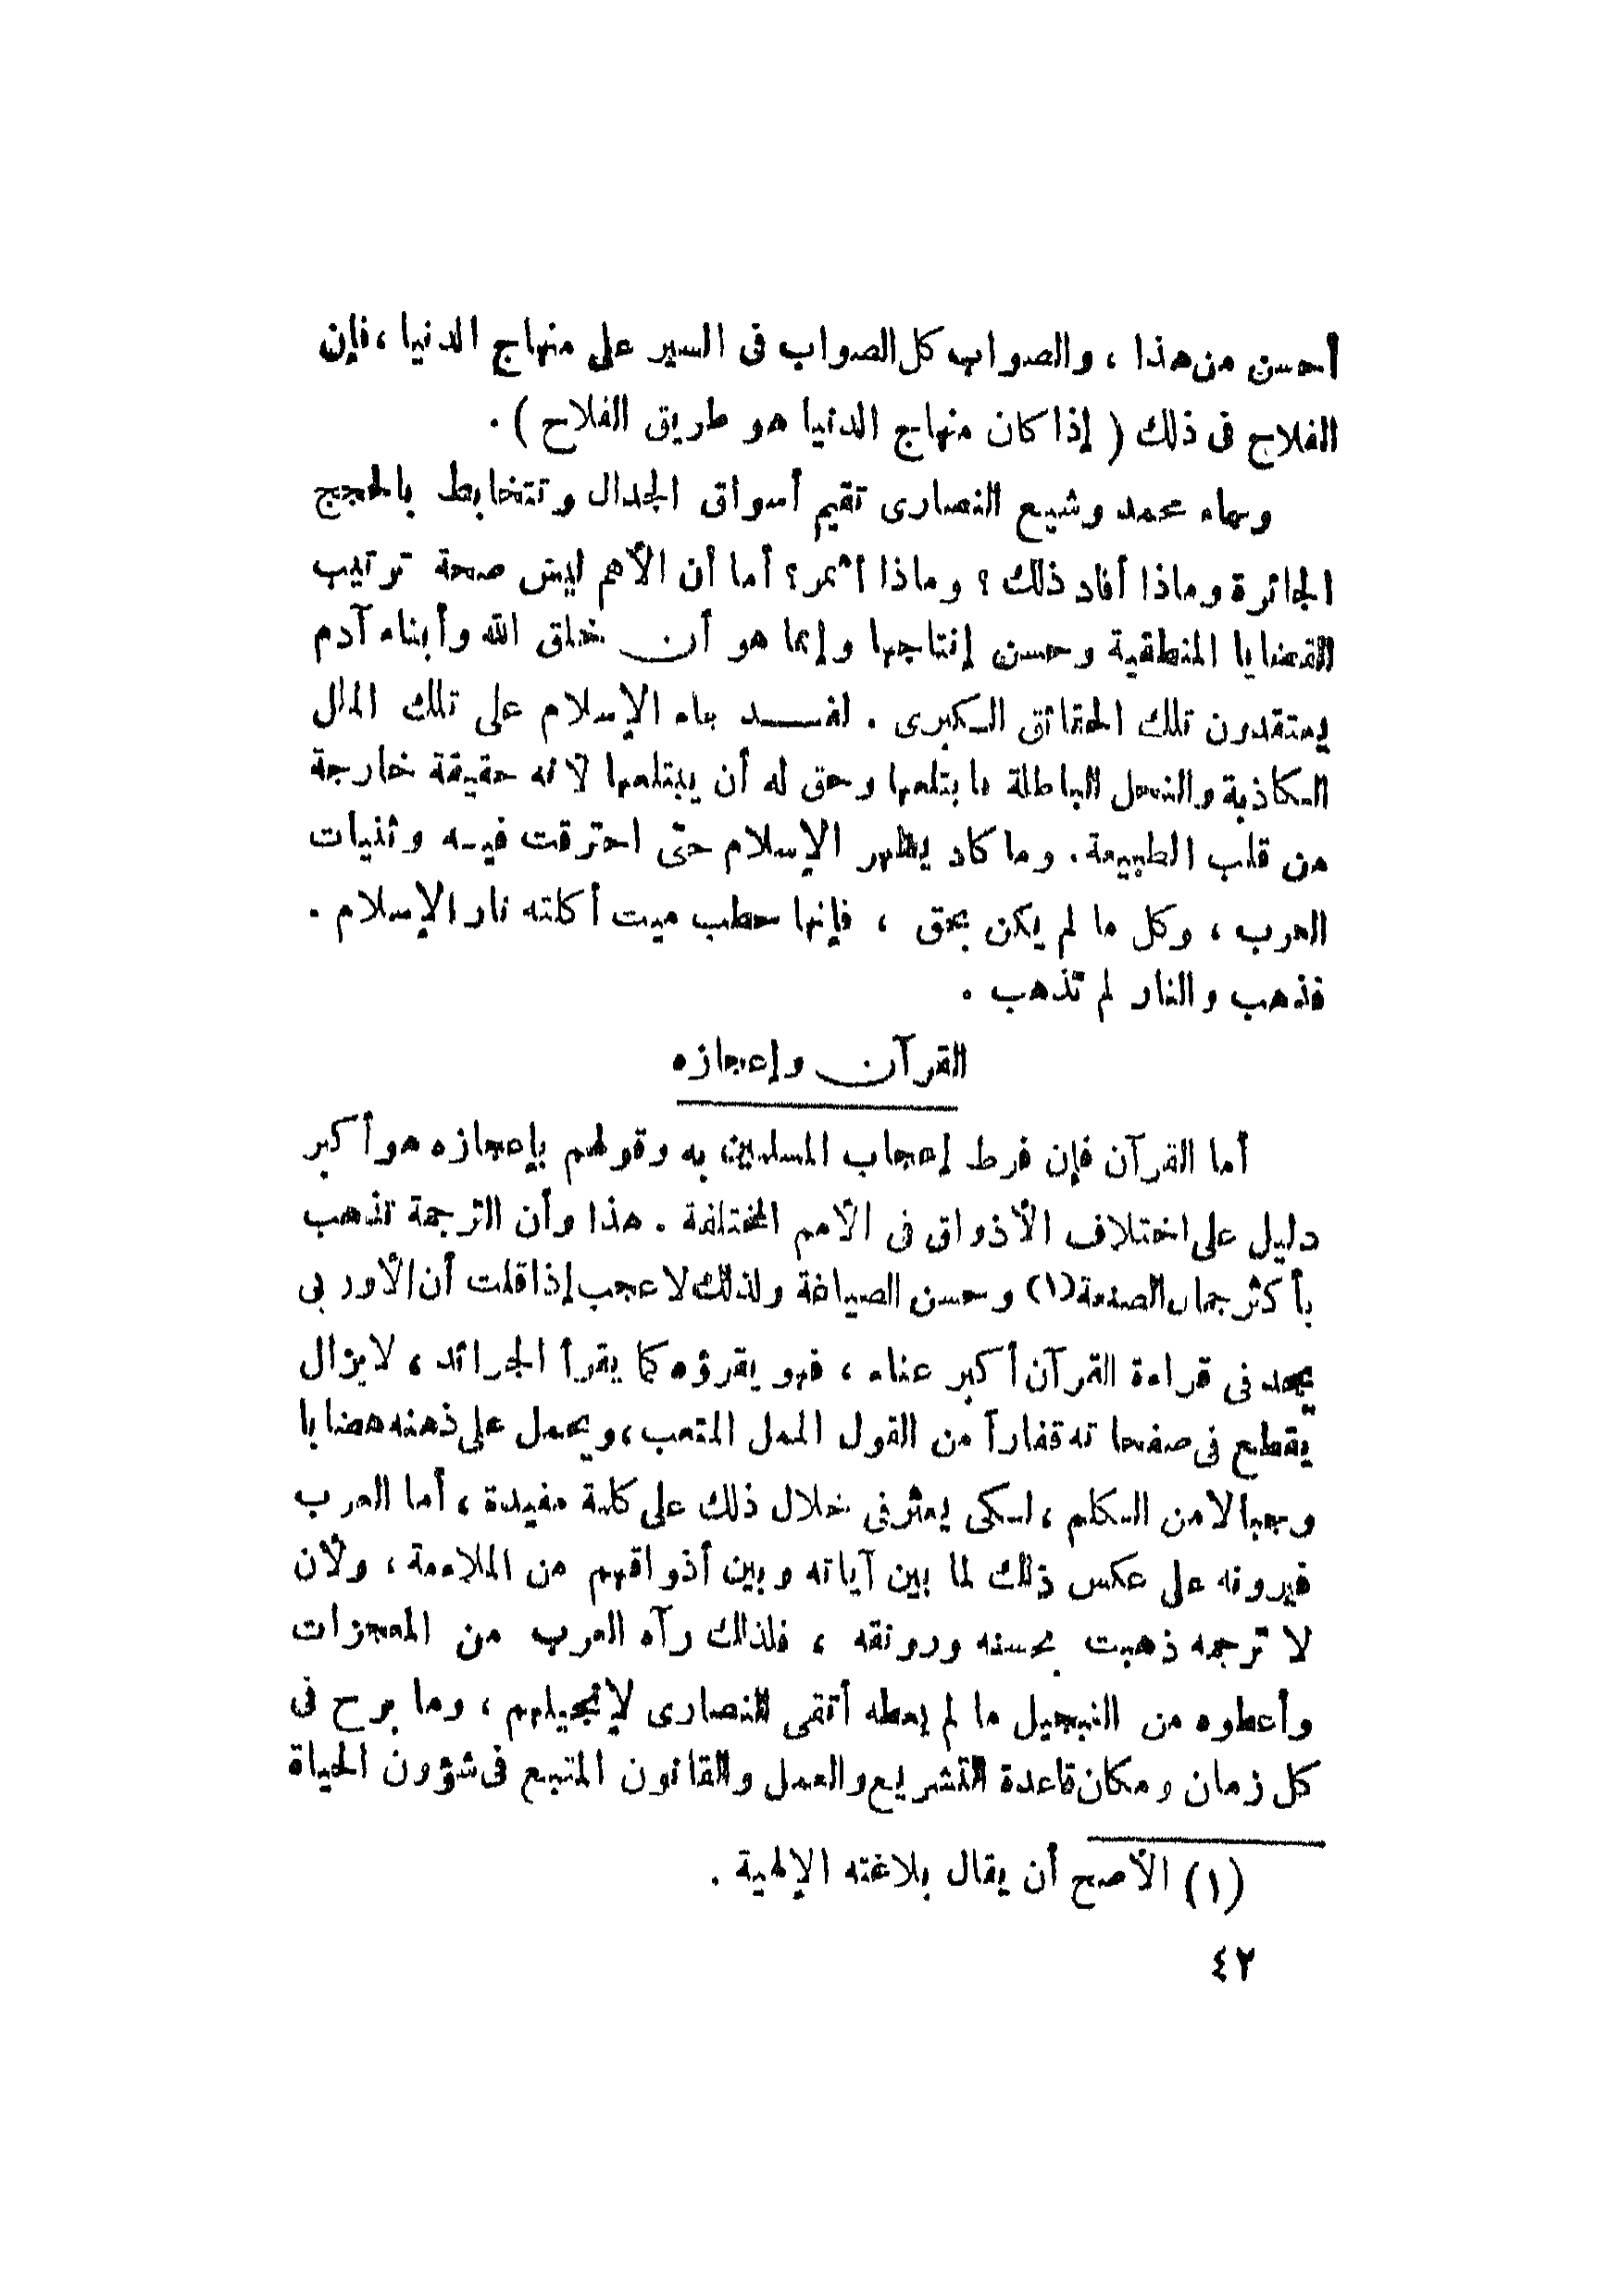 أحسن من هذا ، والصواب كل الصواب فى السير على منهاج الدنيا ، فإن
الفلاح فى ذلك ( إذا كان منهاج الدنيا هو طريق الفلاح ) .
وجاء محمد وشيع النصارى تقيم أسواق الجدال وتتخابط بالحجج
الجائرة وماذا أفاد ذلك ؟ وماذا أثمر ؟ أما أن الأهم ليس صحة ترتيب
القضايا المنطقية وحسن إنتاجها وإنما هو أن خلق الله وأبناء آدم
يعتقدون تلك الحقائق الكبرى . لقد جاء الإسلام على تلك الملل
الكاذبة والنحل الباطلة فابتلعها وحق له أن يبتلعها لأنه حقيقة خارجة
من قلب الطبيعة . وما كاد يظهر الإسلام حتى احترقت فيه وثنيات
العرب ، وكل ما لم يكن بحق ، فإنها حطب ميت أكلته نار الإسلام .
فذهب والنار لم تذهب .
القرآن وإعجازه
أما القرآن فإن فرط إعجاب المسلمين به وقولهم بإعجازه هو أكبر
دليل على اختلاف الأذواق فى الأمم المختلفة . هذا وأن الترجمة تذهب
بأكثر جمال الصنعة (١) وحسن الصياغة ولذلك لا عجب إذا قلت أن الأوربى
يجد فى قراءة القرآن أكبر عناء ، فهو يقرؤه كما يقرأ الجرائد ، لا يزال
يقطع فى صفحاته قفاراً من القول الممل المتعب ، ويحمل على ذهنه هضابا
وجبالا من الكلم ، لكى يعثر فى خلال ذلك على كلمة مفيدة ، أما العرب
فيرونه على عكس ذلك لما بين آياته وبين أذواقهم من الملاءمة ، ولأن
لا ترجمه ذهبت بحسنه ورونقه ، فلذلك رآه العرب من المعجزات
وأعطوه من التبجيل ما لم يعطه أتقى النصارى لإنجيلهم ، وما برح فى
كل زمان ومكان قاعدة التشريع والعمل والقانون المتبع فى شؤون الحياة
(١) الأصح أن يقال بلاغته الإلهية .
٤٢